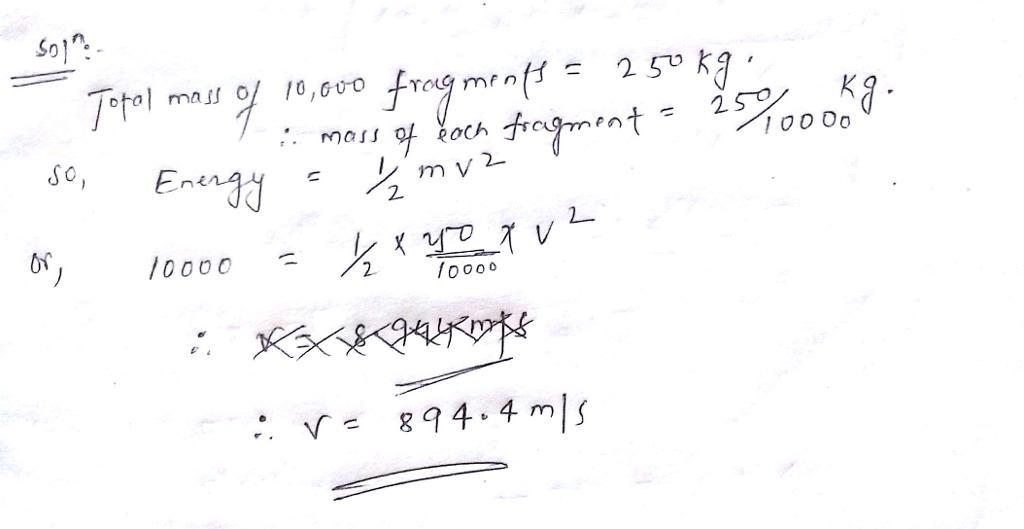 Solⁿ:-
Total mass of 10,000 fragments = 250 kg.
∴ mass of each fragment = 250/10000 kg.
so, Energy = 1/2 m v2
or, 10000 = 1/2 x 250/10000 x v2
∴ v = 894.4 m/s